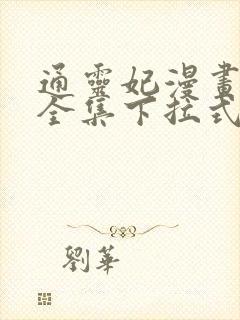 通靈妃漫畫
全集下拉式
劉華